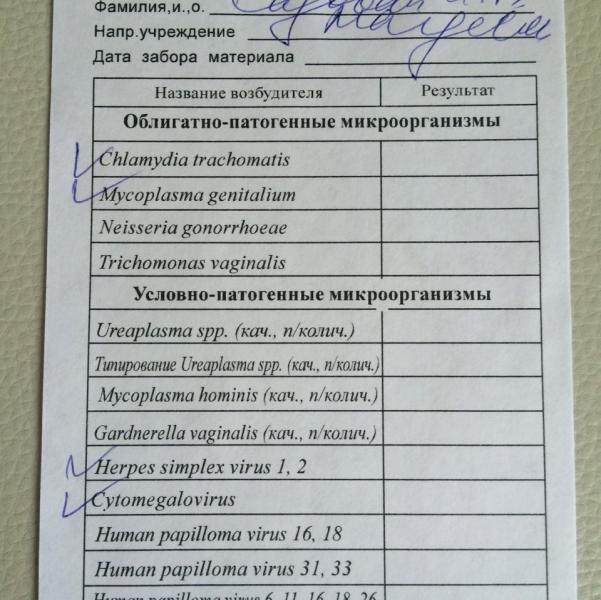 Фамилия,и.,о.
Напр.учреждение
Дата забора материала
Название возбудителя Результат
Облигатно-патогенные микроорганизмы
Chlamydia trachomatis
Mycoplasma genitalium
Neisseria gonorrhoeae
Trichomonas vaginalis
Условно-патогенные микроорганизмы
Ureaplasma spp. (кач., п/колич.)
Типирование Ureaplasma spp. (кач., п/колич.)
Mycoplasma hominis (кач., п/колич.)
Gardnerella vaginalis (кач., п/колич.)
Herpes simplex virus 1, 2
Cytomegalovirus
Human papilloma virus 16, 18
Human papilloma virus 31, 33
Human papilloma virus 6, 11, 16, 18, 26